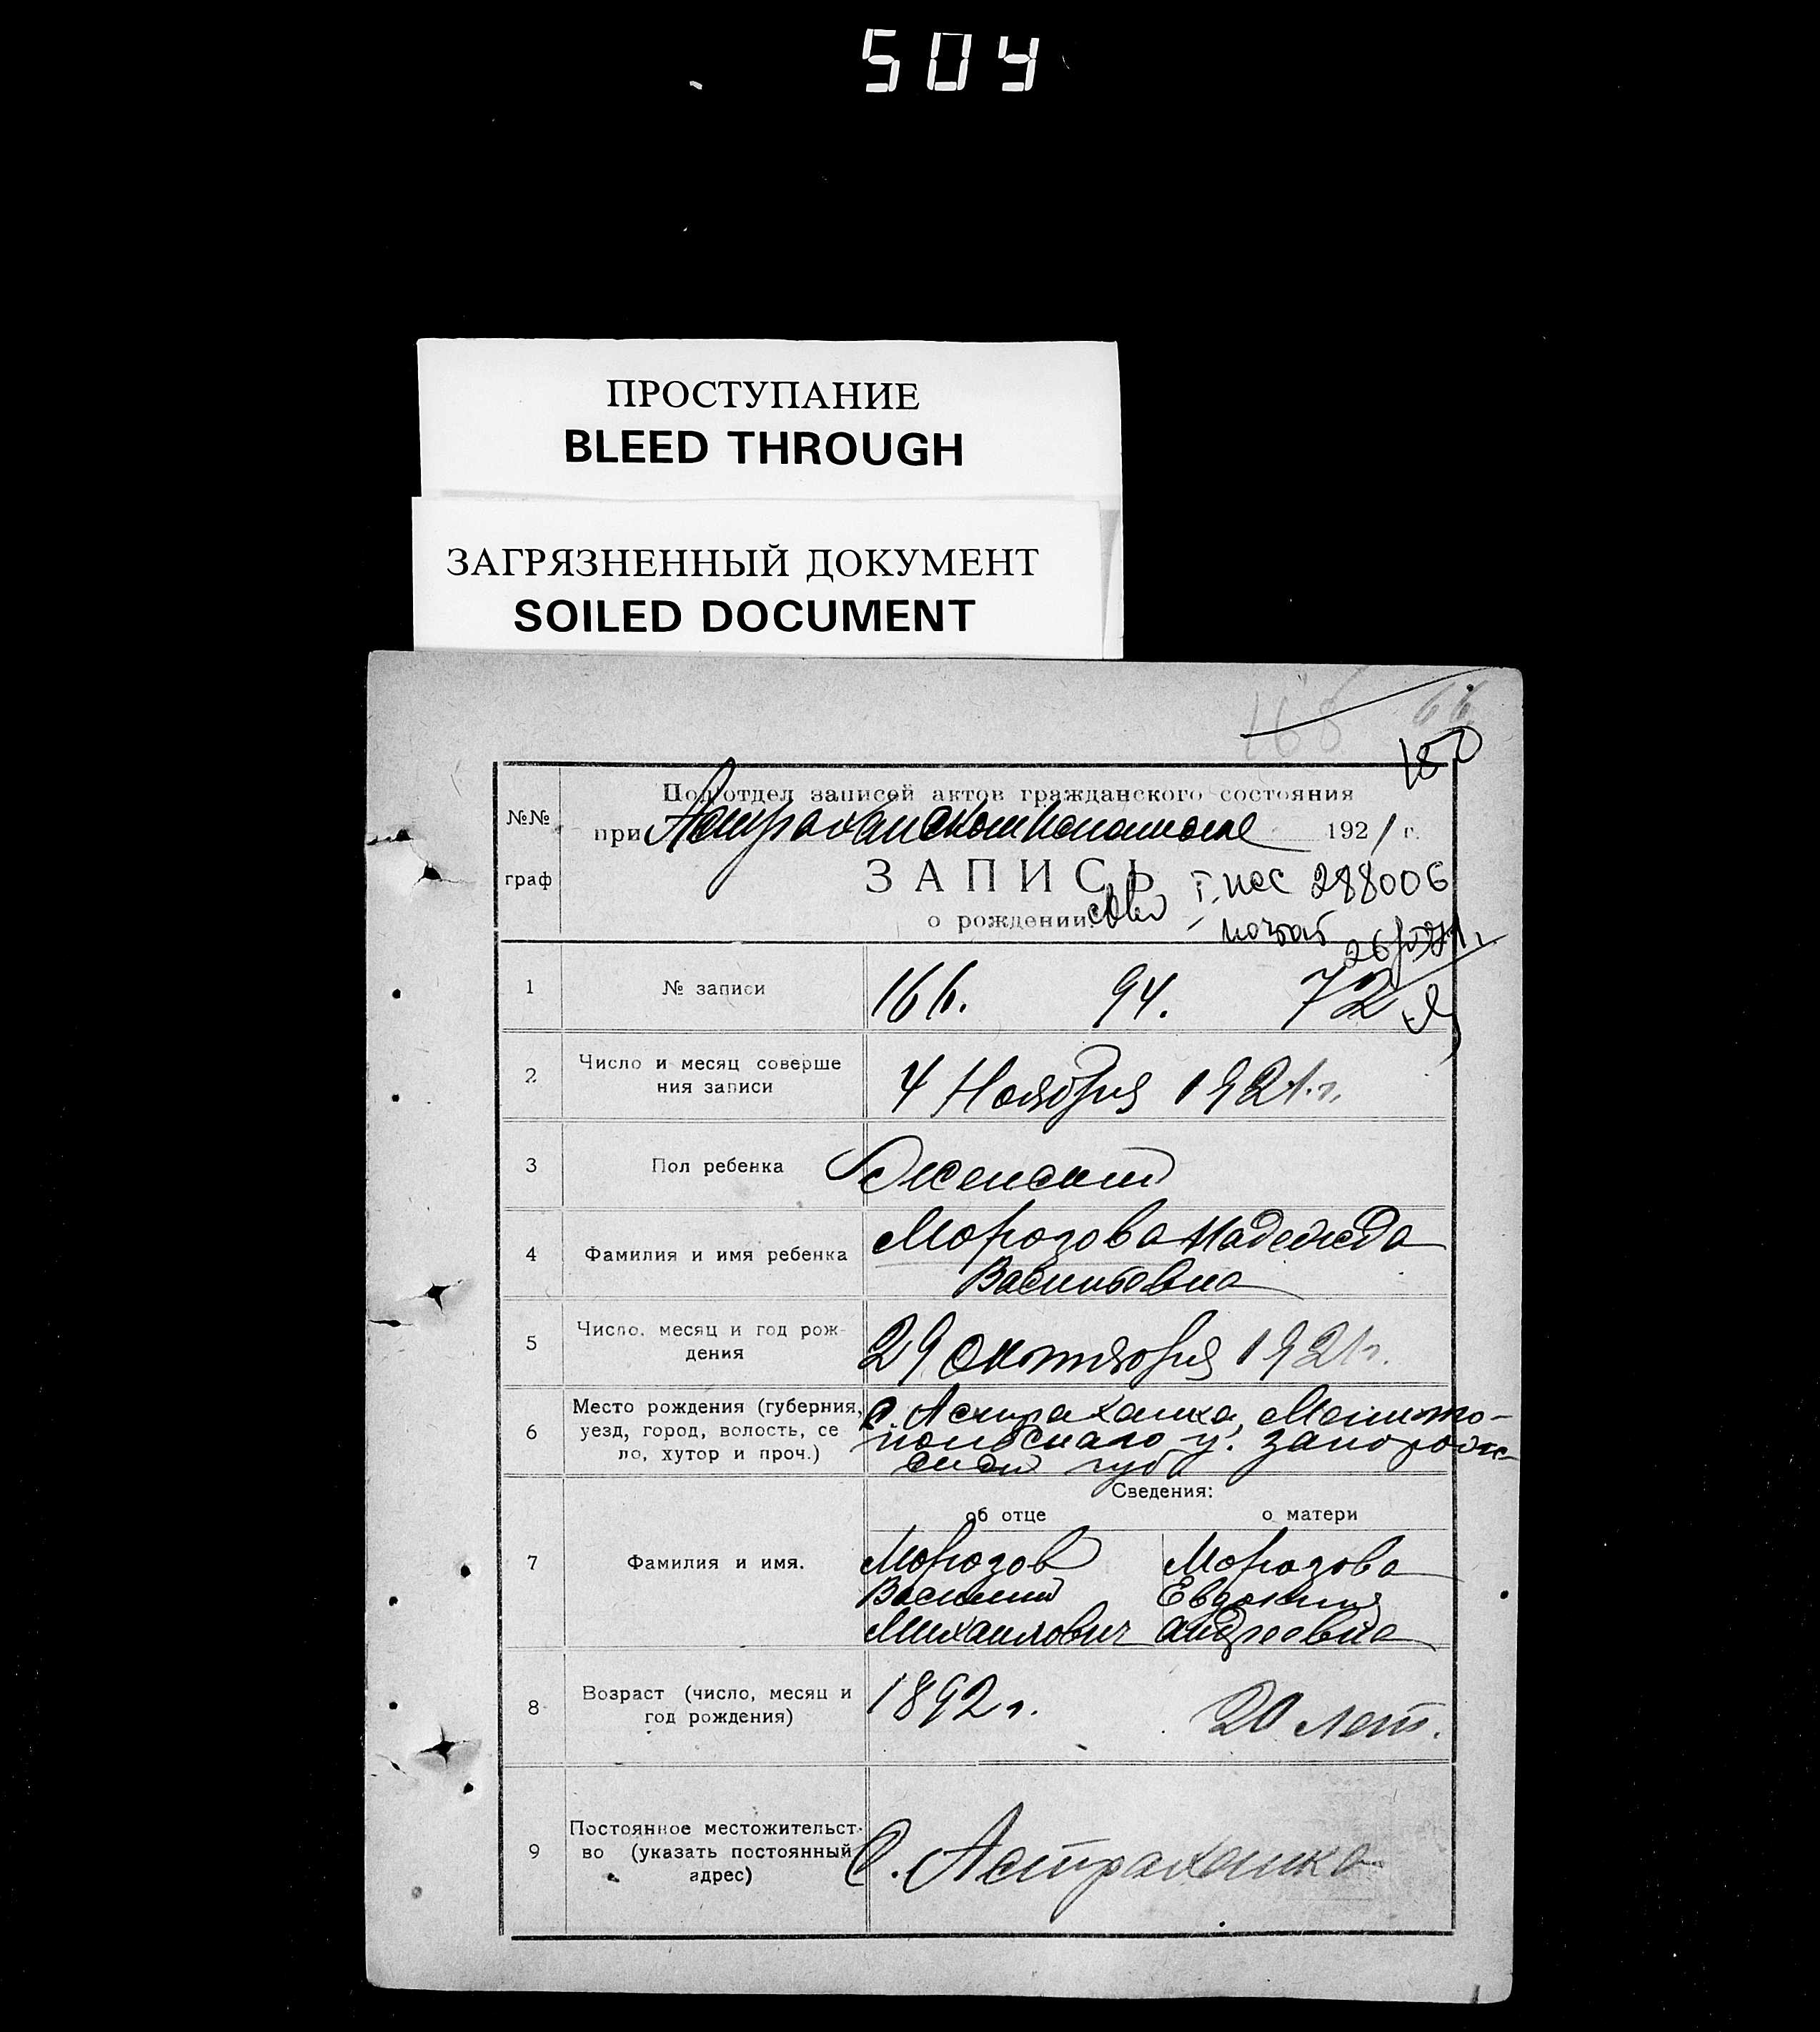 504
ПРОСТУПАНИЕ
BLEED THROUGH
ЗАГРЯЗНЕННЫЙ ДОКУМЕНТ
SOILED DOCUMENT
168 66
180
№№ граф
Подотдел записей актов гражданского состояния
при Астраханском 1921 г.
ЗАПИСЬ
288006
о рождении.
1 № записи 166. 94. 72
2 Число и месяц соверше
ния записи 4 Ноября 1921 г.
3 Пол ребенка Женский
4 Фамилия и имя ребенка Морозова Надежда
Васильевна
5 Число, месяц и год рож-
дения 29 октября 1921 г.
6 Место рождения (губерния,
уезд, город, волость, се
ло, хутор и проч.)
с. Астраханка, Мелито-
польского у. Запорож-
ской губ
Сведения:
об отце о матери
7 Фамилия и имя.
Морозов Морозова
Василий Евдокия
Михаилович Андреевна
8 Возраст (число, месяц и
год рождения) 1892 г. 20 лет.
9 Постоянное местожительст-
во (указать постоянный
адрес) С. Астраханка